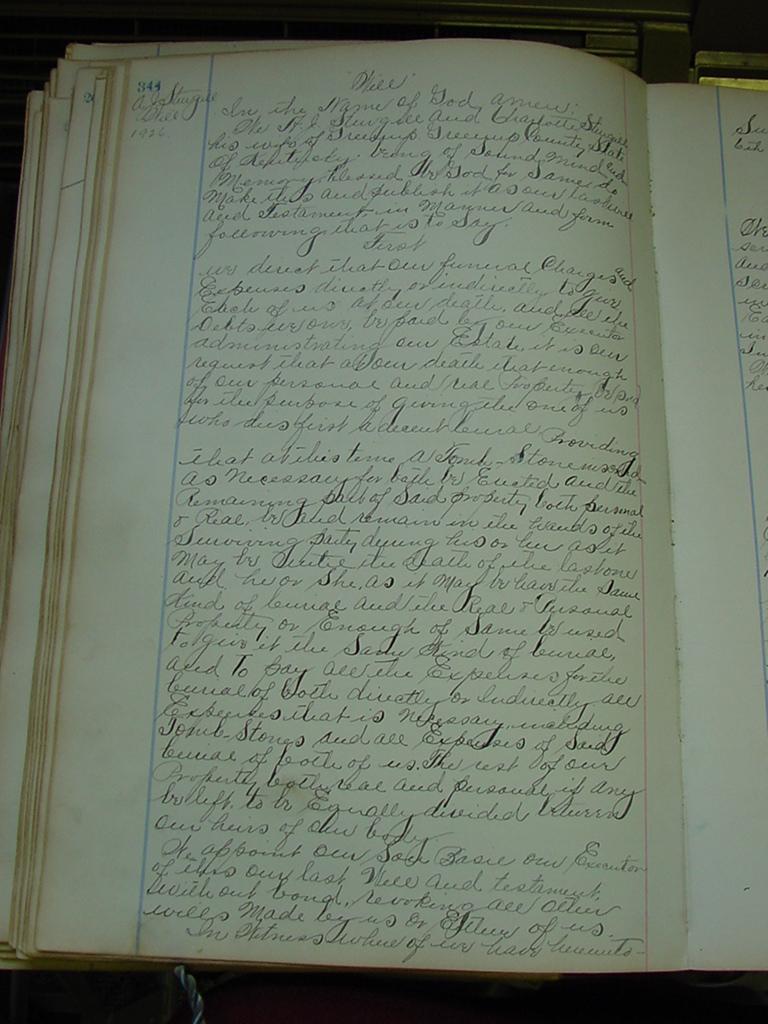 344
Will
A J Sturgill
Will
1926
In the Name of God, amen:
We A. J. Sturgill and Charlotte Sturgill
his wife of Greenup Greenup County, State
of Kentucky. being of Sound Mind and
Memory, blessed be God for Same do
Make this and publish it as our last will
and Testament in Manner and form
following that is to Say:
First
we direct that our funeral Charges and
Expenses directly or indirectly to give
Each of us at our death, and all the
Debts we owe, be paid by our Executor
administrating our Estate it is our
request that at our death that enough
of our personal and real Property, be
for the purpose of giving the one of us
who dies first a decent burial Providing
that at this time a Tomb-Stone
as Necessary for both be Erected and the
Remaining part of Said property, both personal
& Real, be and remain in the hands of the
Surviving party during his or her as it
May be until the death of the last one
and he or She, as it May be have the Same
Kind of burial and the Real & Personal
Property or Enough of Same be used
to give it the Same Kind of burial,
and To pay all the Expenses for the
burial of both directly or Indirectly all
Expenses that is Necessary, including
Tomb-Stones and all Expenses of Said
burial of both of us. The rest of our
Property both real and personal if any
be left to be Equally divided between
our heirs of our body.
We appoint our Son Basil our Executor
of this our last Will and testament,
without bond, revoking all other
wills Made by us or Either of us.
In Witness where of we have hereunto-